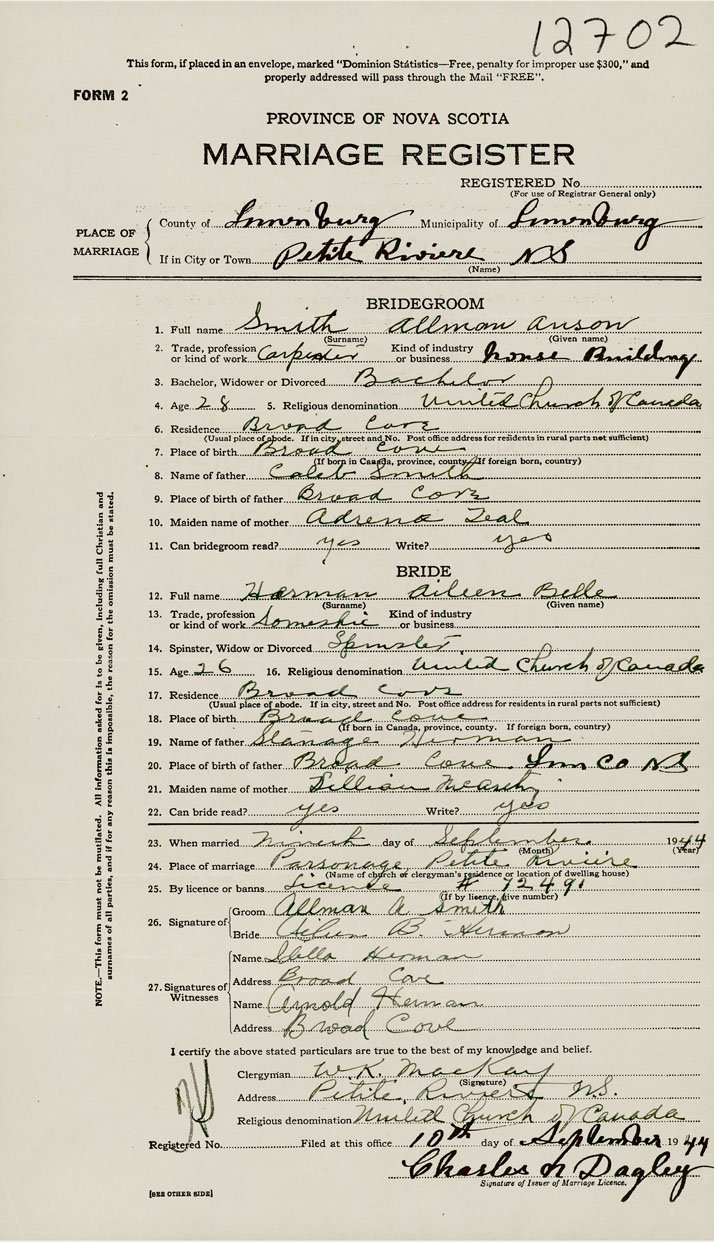 12702
This form, if placed in an envelope, marked "Dominion Statistics—Free, penalty for improper use $300," and
properly addressed will pass through the Mail "FREE".
FORM 2
PROVINCE OF NOVA SCOTIA
MARRIAGE REGISTER
REGISTERED No.
(For use of Registrar General only)
PLACE OF MARRIAGE
County of Lunenburg Municipality of Lunenburg
If in City or Town Petite Riviere NS
(Name)
BRIDEGROOM
1. Full name Smith Allman Anson
(Surname) (Given name)
2. Trade, profession or kind of work Carpenter Kind of industry or business house Building
3. Bachelor, Widower or Divorced Bachelor
4. Age 28 5. Religious denomination United Church of Canada
6. Residence Broad Cove
(Usual place of abode. If in city, street and No. Post office address for residents in rural parts not sufficient)
7. Place of birth Broad Cove
(If born in Canada, province, county. If foreign born, country)
8. Name of father Caleb Smith
9. Place of birth of father Broad Cove
10. Maiden name of mother Adrena Teal
11. Can bridegroom read? yes Write? yes
BRIDE
12. Full name Herman Aileen Belle
(Surname) (Given name)
13. Trade, profession or kind of work Domestic Kind of industry or business
14. Spinster, Widow or Divorced Spinster
15. Age 26 16. Religious denomination United Church of Canada
17. Residence Broad Cove
(Usual place of abode. If in city, street and No. Post office address for residents in rural parts not sufficient)
18. Place of birth Broad Cove
(If born in Canada, province, county. If foreign born, country)
19. Name of father Stanage Herman
20. Place of birth of father Broad Cove Lun Co NS
21. Maiden name of mother Lillian
22. Can bride read? yes Write? yes
23. When married Ninth day of September 1944
(Month) (Year)
24. Place of marriage Parsonage Petite Riviere
(Name of church or clergyman's residence or location of dwelling house)
25. By licence or banns License # 72491
(If by licence, give number)
26. Signature of
Groom Allman A Smith
Bride Aileen B. Herman
27. Signatures of Witnesses
Name Stella Herman
Address Broad Cove
Name Arnold Herman
Address Broad Cove
I certify the above stated particulars are true to the best of my knowledge and belief.
Clergyman W.K. MacKay
(Signature)
Address Petite Riviere N.S.
Religious denomination United Church of Canada
Registered No. Filed at this office 10th day of September 1944
Charles N Dagley
Signature of Issuer of Marriage Licence.
[SEE OTHER SIDE]
NOTE.—This form must not be mutilated. All information asked for is to be given, including full Christian and
surnames of all parties, and if for any reason this is impossible, the reason for the omission must be stated.